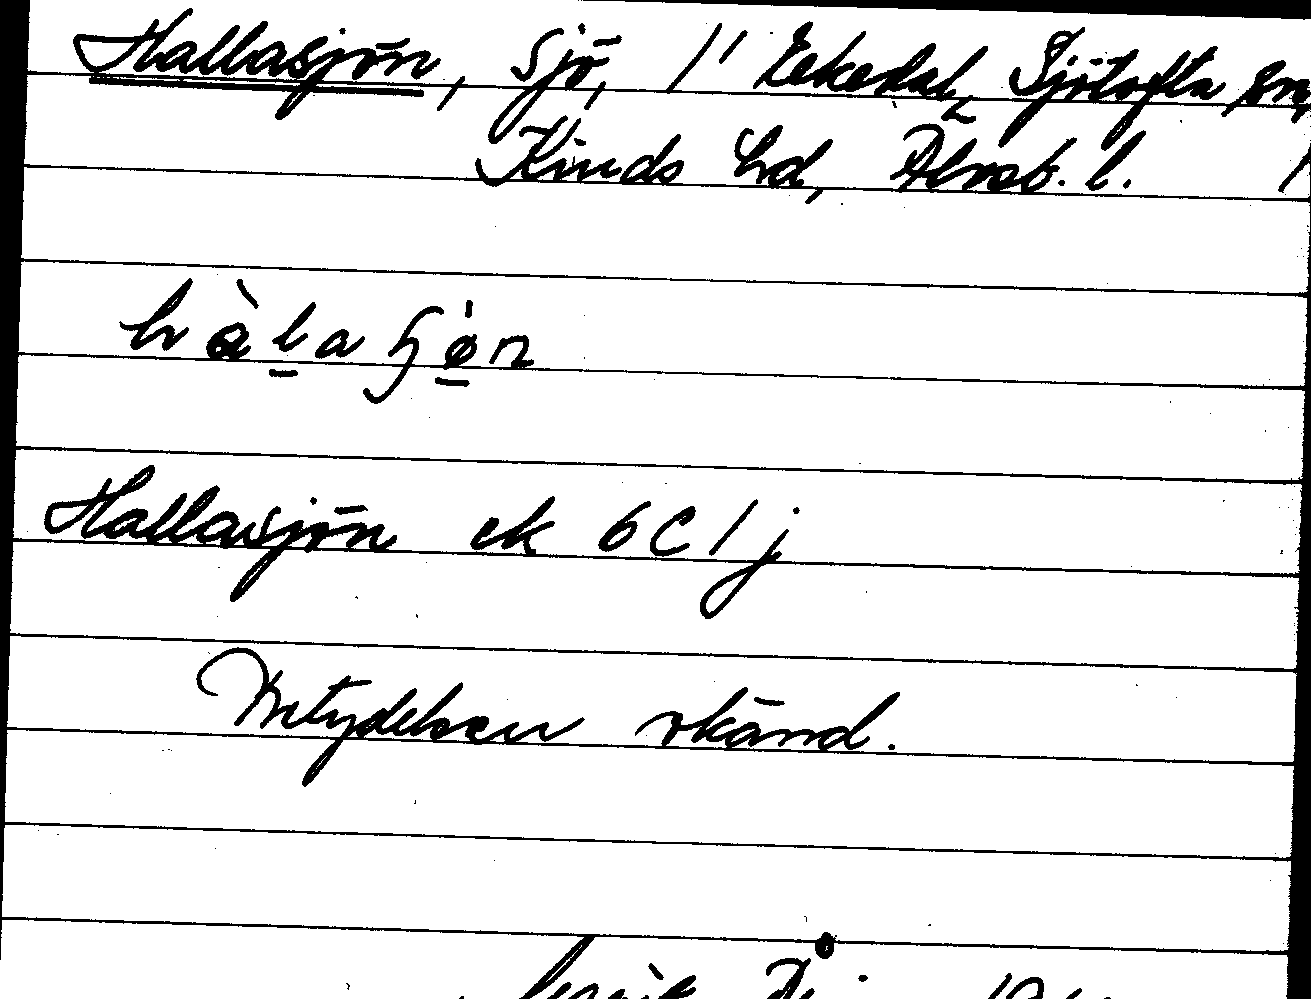 Hallasjön, sjö, 1' Eekedal, Sjötofta sn,
Kinds hd, Älvsb. l.
hàlaɧøn
Hallasjön ek 6C1j
Betydelsen okänd.